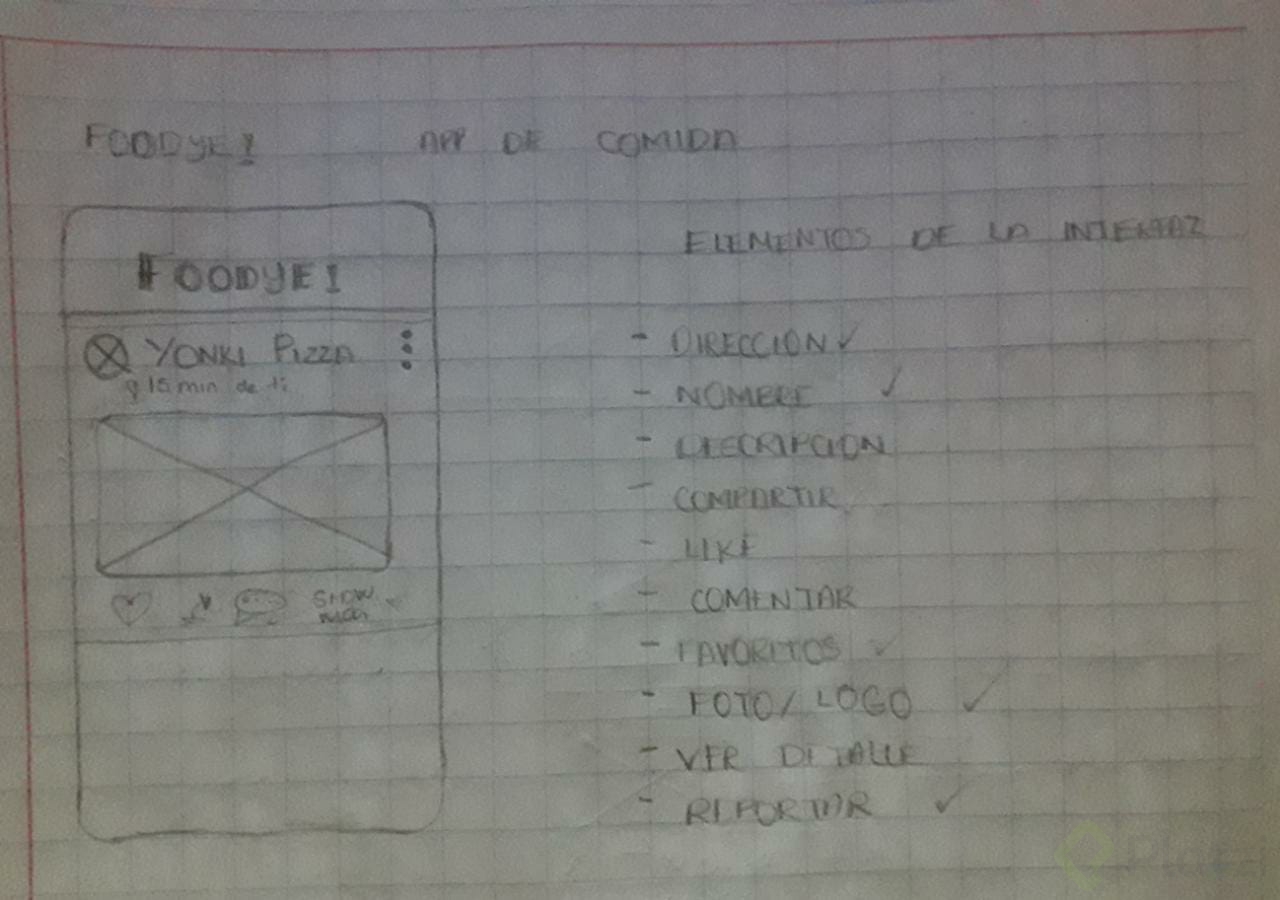 FOODYE!
APP DE COMIDA
FOODYE!
YONKI PIZZA
15 min de ti
SHOW
ELEMENTOS DE LA INTERFAZ
- DIRECCION ✓
- NOMBRE ✓
- DESCRIPCION
- COMPARTIR
- LIKE
- COMENTAR
- FAVORITOS ✓
- FOTO/LOGO ✓
- VER DETALLE
- REPORTAR ✓